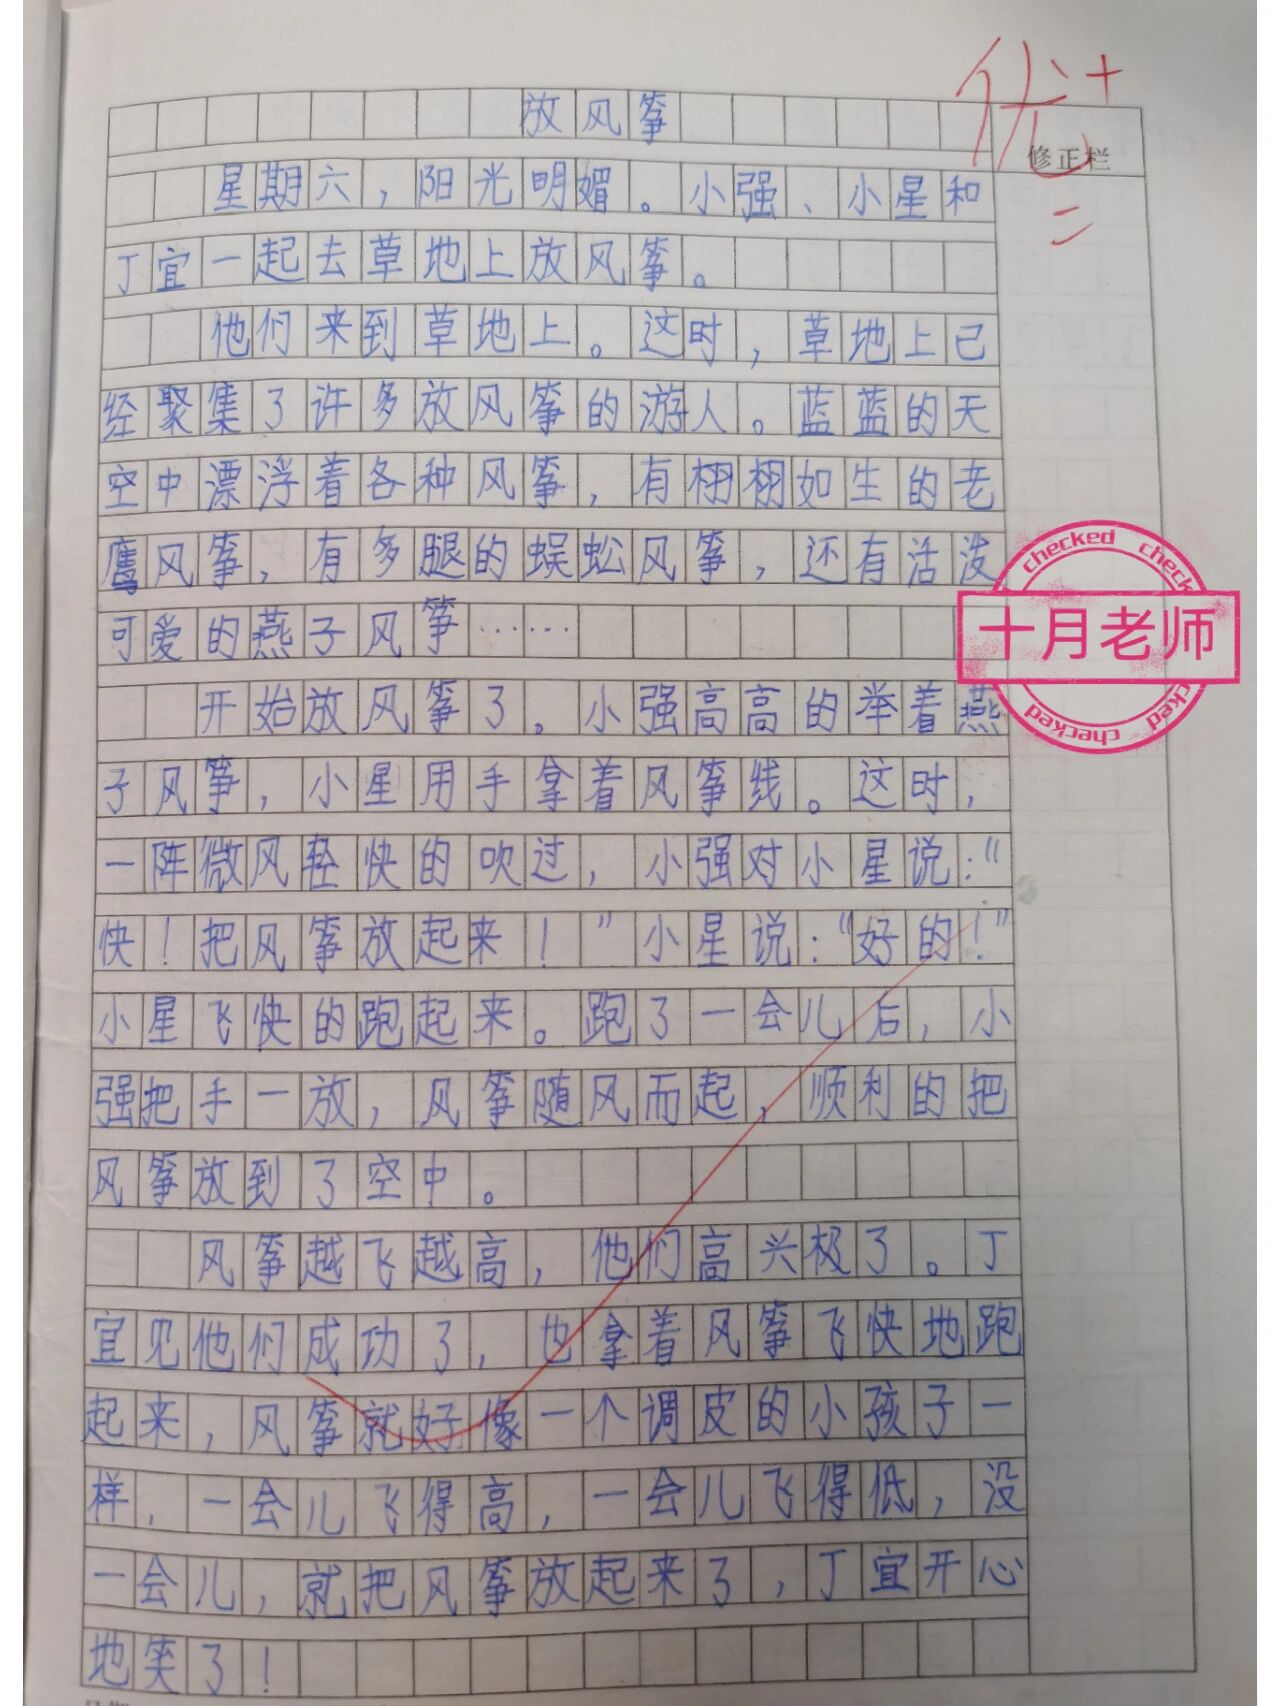 优+
放风筝
修正栏
星期六，阳光明媚。小强、小星和
二
丁宜一起去草地上放风筝。
他们来到草地上。这时，草地上已
经聚集了许多放风筝的游人。蓝蓝的天
空中漂浮着各种风筝，有栩栩如生的老
鹰风筝，有多腿的蜈蚣风筝，还有活泼
可爱的燕子风筝……
checked checked
十月老师
checked checked
开始放风筝了。小强高高的举着燕
子风筝，小星用手拿着风筝线。这时，
一阵微风轻快的吹过，小强对小星说：“
快！把风筝放起来！”小星说：“好的！”
小星飞快的跑起来。跑了一会儿后，小
强把手一放，风筝随风而起，顺利的把
风筝放到了空中。
风筝越飞越高，他们高兴极了。丁
宜见他们成功了，也拿着风筝飞快地跑
起来，风筝就好像一个调皮的小孩子一
样，一会儿飞得高，一会儿飞得低，没
一会儿，就把风筝放起来了，丁宜开心
地笑了！